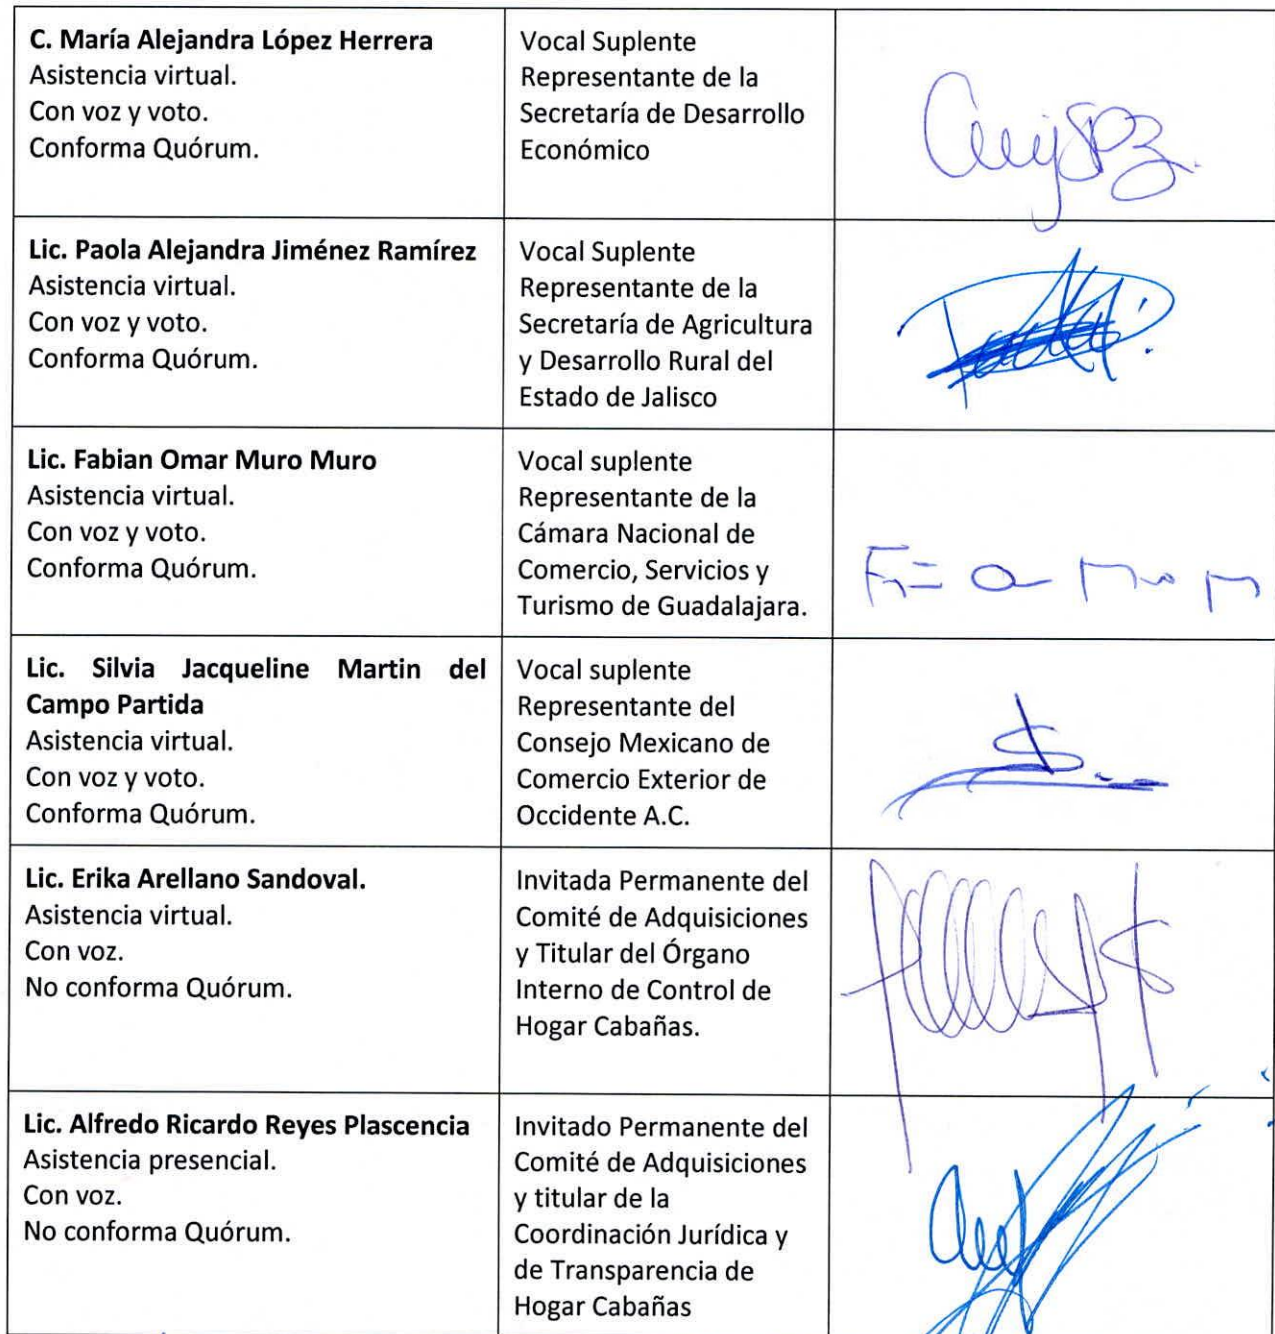 C. María Alejandra López Herrera
Asistencia virtual.
Con voz y voto.
Conforma Quórum.
Vocal Suplente
Representante de la
Secretaría de Desarrollo
Económico
Lic. Paola Alejandra Jiménez Ramírez
Asistencia virtual.
Con voz y voto.
Conforma Quórum.
Vocal Suplente
Representante de la
Secretaría de Agricultura
y Desarrollo Rural del
Estado de Jalisco
Lic. Fabian Omar Muro Muro
Asistencia virtual.
Con voz y voto.
Conforma Quórum.
Vocal suplente
Representante de la
Cámara Nacional de
Comercio, Servicios y
Turismo de Guadalajara.
Lic. Silvia Jacqueline Martin del
Campo Partida
Asistencia virtual.
Con voz y voto.
Conforma Quórum.
Vocal suplente
Representante del
Consejo Mexicano de
Comercio Exterior de
Occidente A.C.
Lic. Erika Arellano Sandoval.
Asistencia virtual.
Con voz.
No conforma Quórum.
Invitada Permanente del
Comité de Adquisiciones
y Titular del Órgano
Interno de Control de
Hogar Cabañas.
Lic. Alfredo Ricardo Reyes Plascencia
Asistencia presencial.
Con voz.
No conforma Quórum.
Invitado Permanente del
Comité de Adquisiciones
y titular de la
Coordinación Jurídica y
de Transparencia de
Hogar Cabañas